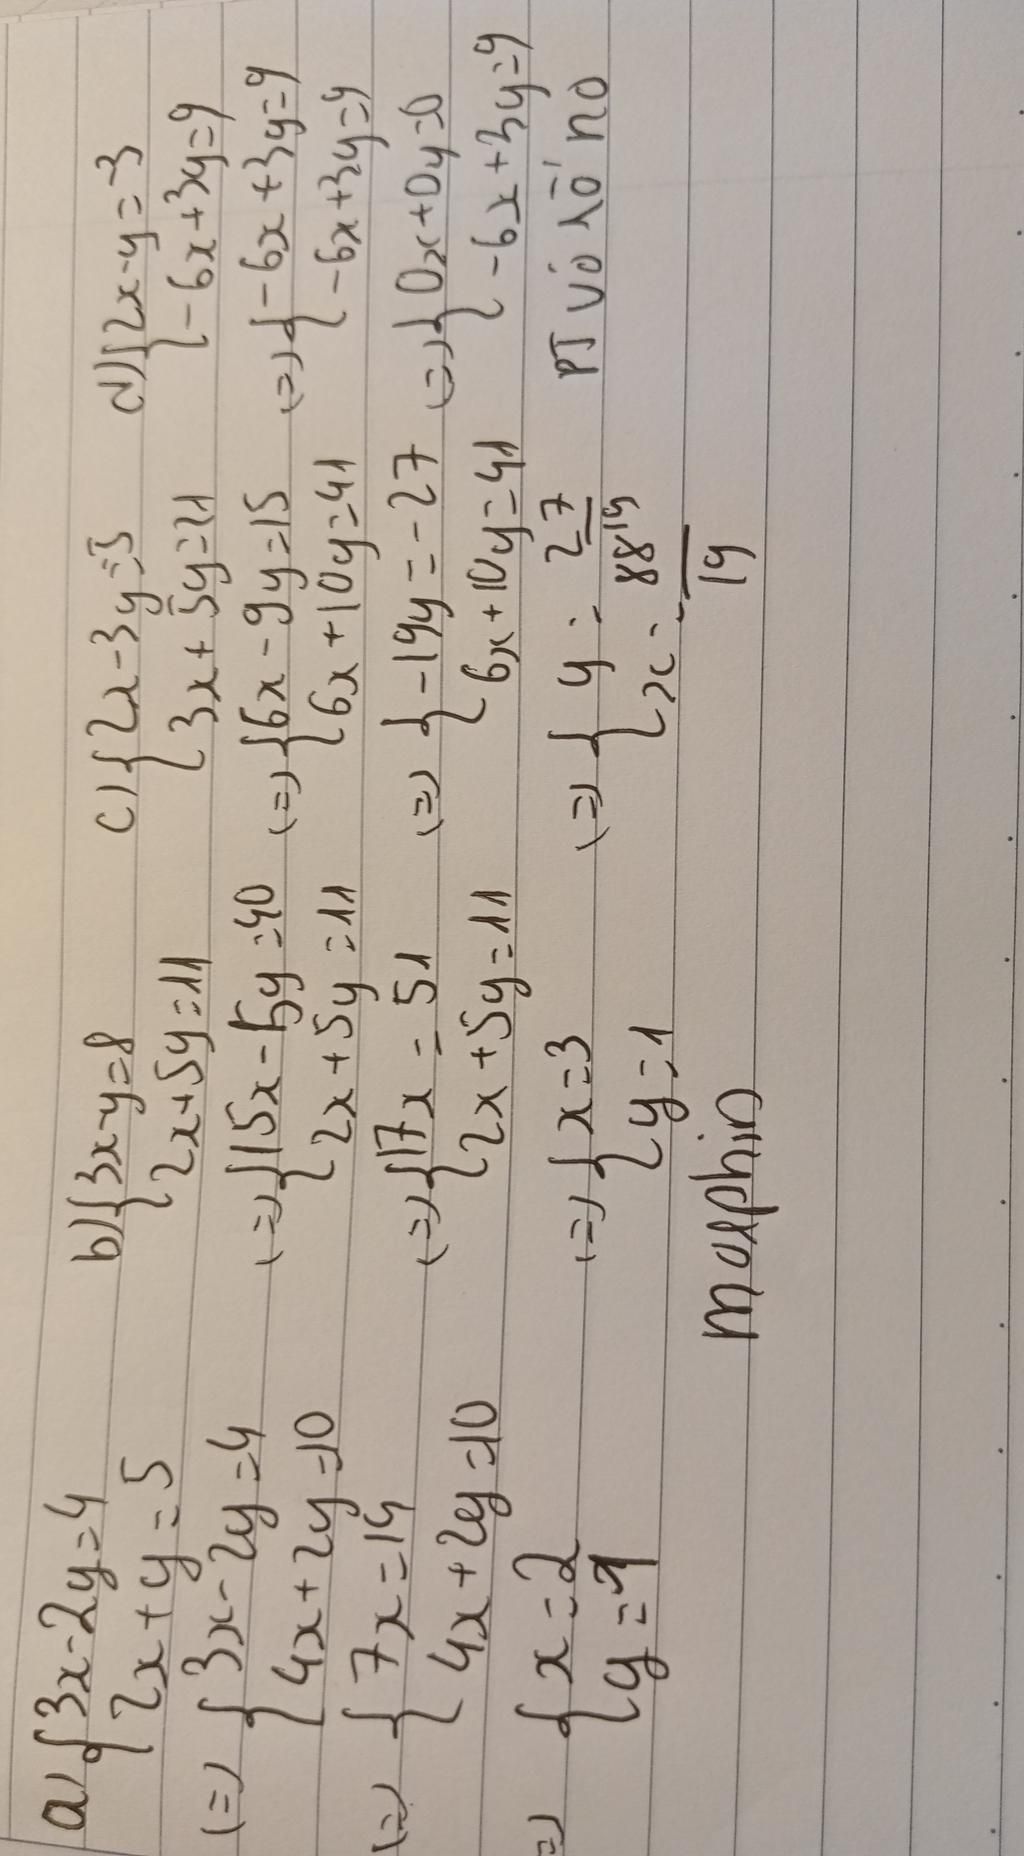 a) { 3x-2y=4
2x+y=5
(=) { 3x-2y=4
4x+2y=10
(=) { 7x=14
4x+2y=10
=) { x=2
y=1
b) { 3x-y=8
2x+5y=11
(=) { 15x-5y=40
2x+5y=11
(=) { 17x=51
2x+5y=11
(=) { x=3
y=1
morphin
c) { 2x-3y=5
3x+5y=21
(=) { 6x-9y=15
6x+10y=41
(=) { -19y=-27
6x+10y=41
(=) { y=27/19
x=88/19
d) { 2x-y=-3
-6x+3y=9
(=) { -6x+3y=9
-6x+3y=9
(=) { 0x+0y=0
-6x+3y=9
PT vô số no